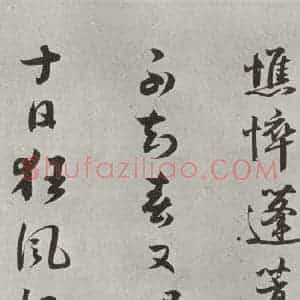 憔悴蓬
不知春又
十日狂风
Shufaziliao.com